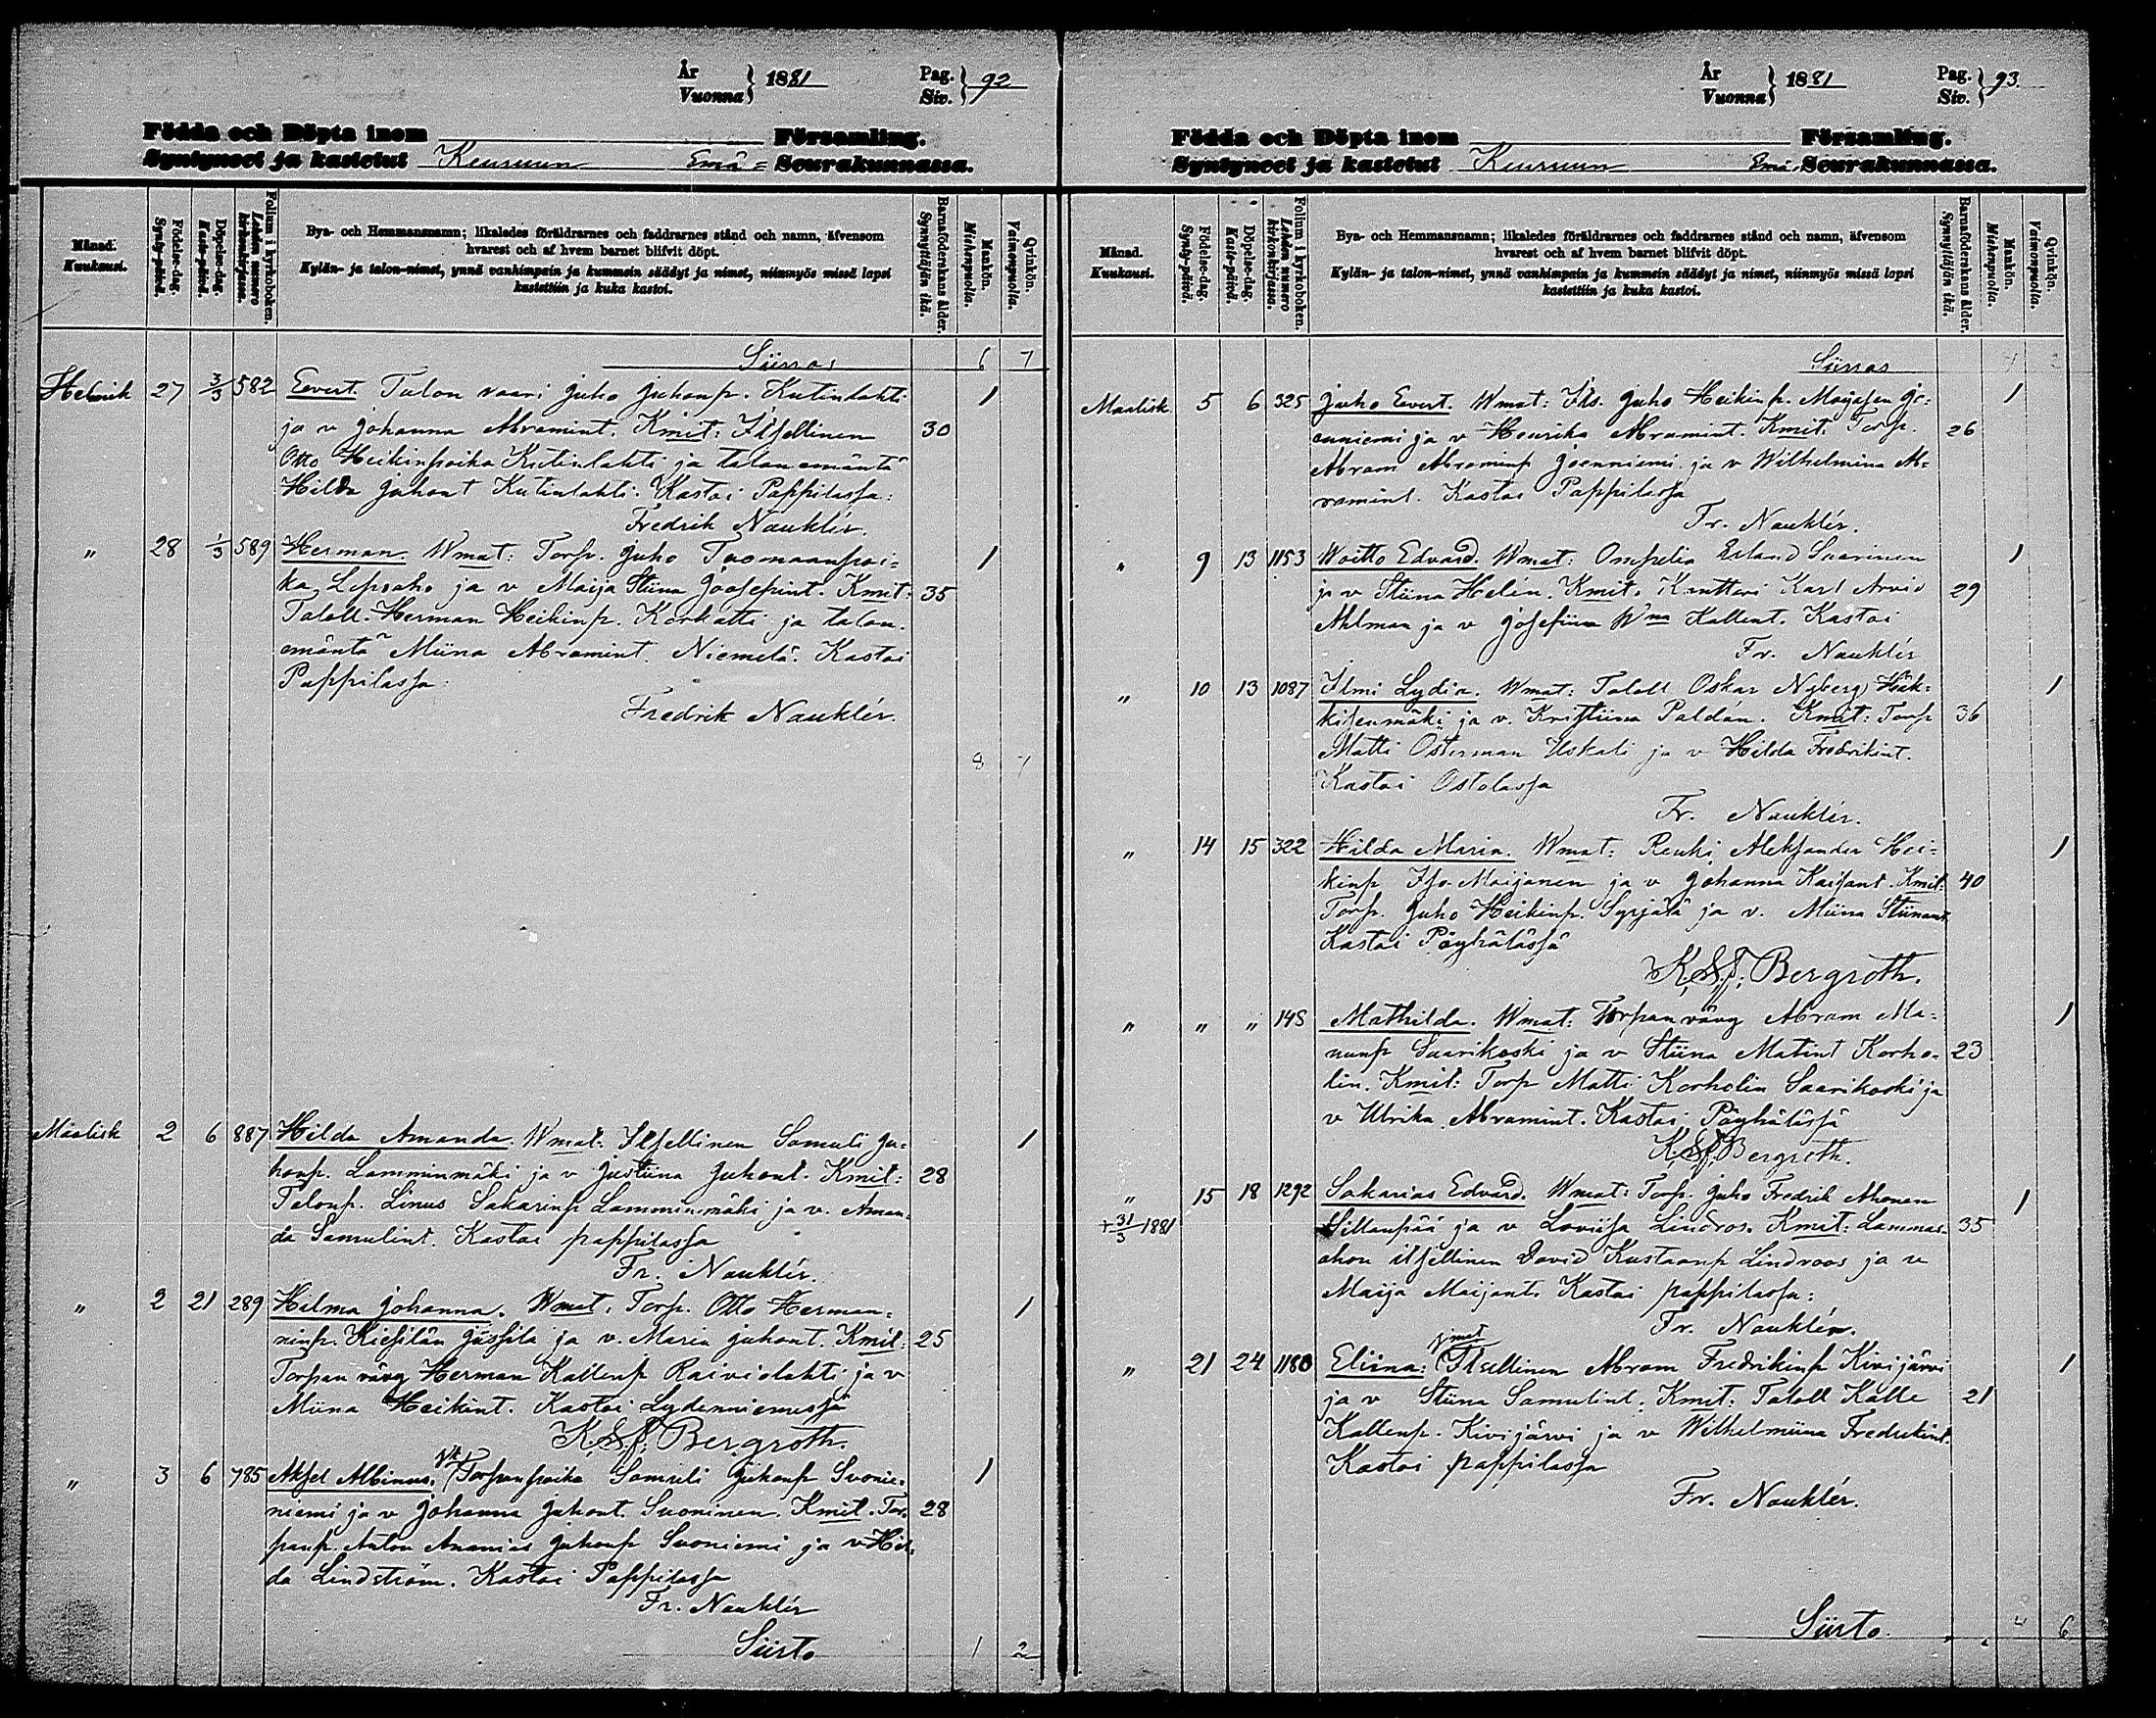 År
Vuonna } 1881
Pag.
Siv. } 92
Födda och Döpta inom Församling.
Syntyneet ja kastetut Keuruun Emä= Seurakunnassa.
Månad.
Kuukausi.
Födelse-dag.
Synty-päivä.
Döpelse-dag.
Kaste-päivä.
Folium i kyrkoboken.
Lehden numero kirkonkirjassa.
Bya- och Hemmansnamn; likaledes föräldrarnes och faddrarnes stånd och namn, äfvensom
hvarest och af hvem barnet blifvit döpt.
Kylän- ja talon-nimet, ynnä vanhimpain ja kummein säädyt ja nimet, niinmyös missä lapsi
kastettiin ja kuka kastoi.
Barnaföderskans ålder.
Synnyttäjän ikä.
Mankön.
Miehenpuolia.
Qvinkön.
Vaimonpuolia.
Siirros 6 7
Helmik 27 3/3 582 Eevert. Talon vaari Juho Juhonp. Kutinlahti 1
ja v Johanna Abramint. Kmit: Itsellinen 30
Otto Heikinpoika Kutinlahti ja talon emäntä
Hilda Juhont Kutinlahti. Kastoi Pappilassa:
Fredrik Nauklér.
" 28 1/3 589 Herman. Wmat: Torp. Juho Tuomaanpoi= 1
ka Lepsaho ja v Maija Stiina Joosepint. Kmit: 35
Taloll. Herman Heikinp. Korkatti ja talon.
emäntä Miina Abramint. Niemelä. Kastoi
Pappilassa:
Fredrik Nauklér.
8 7
Maalisk 2 6 887 Hilda Amanda. Wmat: Itsellinen Samuli Ju= 1
honp. Lamminmäki ja v Justiina Juhont. Kmit: 28
Talonp. Linus Sakarinp Lamminmäki ja v. Aman=
da Samulint. Kastoi pappilassa
Fr. Nauklér.
" 2 21 289 Hilma Johanna. Wmat: Torp. Otto Herman= 1
ninp. Kiesilän Jussila ja v. Maria Juhont. Kmit: 25
Torpan vävy Herman Kallenp Raiviolahti ja v
Miina Heikint. Kastoi Lydenniemessä
K.S.J. Bergroth.
" 3 6 785 Aksel Albinus. Vt Torpan poika Samuli Juhonp Suonie= 1
niemi ja v Johanna Juhont. Suoninen. Kmit. Tor= 28
panp. Anton Ananias Juhonp Suoniemi ja v Hil=
da Lindström. Kastoi Pappilassa
Fr. Nauklér
Siirto 1 2
År
Vuonna } 1881
Pag.
Siv. } 93.
Födda och Döpta inom Församling.
Syntyneet ja kastetut Keuruun Emä Seurakunnassa.
Månad.
Kuukausi.
Födelse-dag.
Synty-päivä.
Döpelse-dag.
Kaste-päivä.
Folium i kyrkoboken.
Lehden numero kirkonkirjassa.
Bya- och Hemmansnamn; likaledes föräldrarnes och faddrarnes stånd och namn, äfvensom
hvarest och af hvem barnet blifvit döpt.
Kylän- ja talon-nimet, ynnä vanhimpain ja kummein säädyt ja nimet, niinmyös missä lapsi
kastettiin ja kuka kastoi.
Barnaföderskans ålder.
Synnyttäjän ikä.
Mankön.
Miehenpuolia.
Qvinkön.
Vaimonpuolia.
Siirros
Maalisk 5 6 325 Juho Eevert. Wmat: Its. Juho Heikinp. Maijasen Jo= 1
enniemi ja v Henrika Abramint. Kmit. Torp. 26
Abram Abraminp Joenniemi ja v Wilhelmina Ab=
ramint. Kastoi Pappilassa
Fr. Nauklér.
" 9 13 1153 Woitto Edvard. Wmat: Ompelia Erland Saarinen 1
ja v Stiina Helén. Kmit. Kruttari Karl Arvid 29
Ahlman ja v Josefiina Wma Kallent. Kastoi
Fr. Nauklér
" 10 13 1087 Ilmi Lydia. Wmat: Taloll Oskar Nyberg Häk= 1
kisenmäki ja v. Kristiina Paldán. Kmit: Torp 36
Matti Österman Uskali ja v Hilda Fredrikint.
Kastoi Ostolassa
Fr. Nauklér.
" 14 15 322 Hilda Maria. Wmat: Renki Aleksander Hei= 1
kinp Iso Maijanen ja v Johanna Kaisant. Kmit: 40
Torp. Juho Heikinp. Syrjälä ja v. Miina Stiinant.
Kastoi Pöyhölässä
K.S.J. Bergroth.
" " " 148 Mathilda. Wmat: Torpan vävy Abram Ma= 1
nunp Saarikoski ja v Stiina Matint Korho= 23
lin. Kmit: Torp Matti Korholin Saarikoski ja
v Ulrika Abramint. Kastoi Pöyhölässä
K.S.J. Bergroth.
" 15 18 1292 Sakarias Edvard. Wmat: Torp. Juho Fredrik Ahonen 1
+ 31/3 1881 Sillanpää ja v Loviisa Lindros. Kmit: Lammas= 35
ahon itsellinen David Kustaanp Lindroos ja v
Maija Maijant. Kastoi pappilassa:
Fr. Nauklér.
" 21 24 1180 Eliina: Itsellinen Abram Fredrikinp Kivijärvi 1
ja v Stiina Samulint. Kmit: Taloll Kalle 21
Kallenp. Kivijärvi ja v Wilhelmiina Fredrikint.
Kastoi pappilassa
Fr. Nauklér.
Siirto 4 6